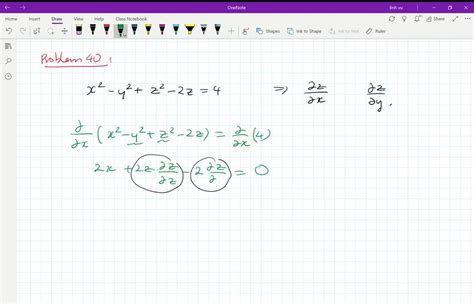 OneNote
linh vu
Home Insert Draw View Help Class Notebook
Shapes Ink to Shape Ink to Text Math
Problem 40:
x² - y² + z² - 2z = 4 ⇒ ∂z/∂x ∂z/∂y.
∂/∂x (x² - y² + z² - 2z) = ∂/∂x (4)
2x + 2z · ∂z/∂z - 2 ∂z/∂ = 0